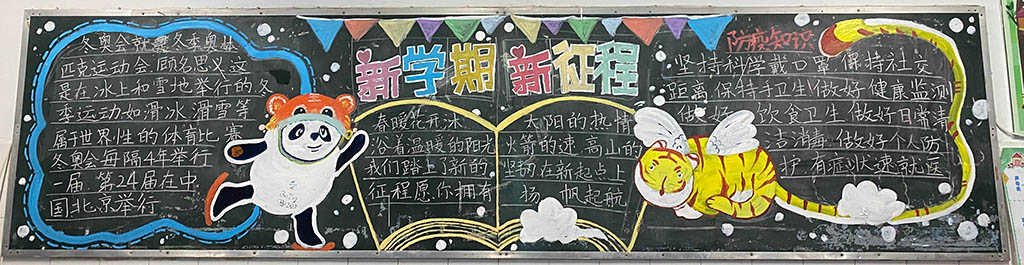 冬奥会就是冬季奥林
匹克运动会,顾名思义这
是在冰上和雪地举行的冬
季运动如滑冰、滑雪等
属于世界性的体育比赛
冬奥会每隔4年举行
一届.第24届在中
国北京举行
新学期 新征程
春暖花开冰
沿着温暖的阳光
我们踏上了新的
征程愿你拥有
太阳的热情
火箭的速 高山的
坚韧在新起点上
扬 帆起航
防疫知识
坚持科学戴口罩 保持社交
距离 保持手卫生 做好健康监测
做好 饮食卫生 做好日常清
洁消毒 做好个人防
护 有症状速就医